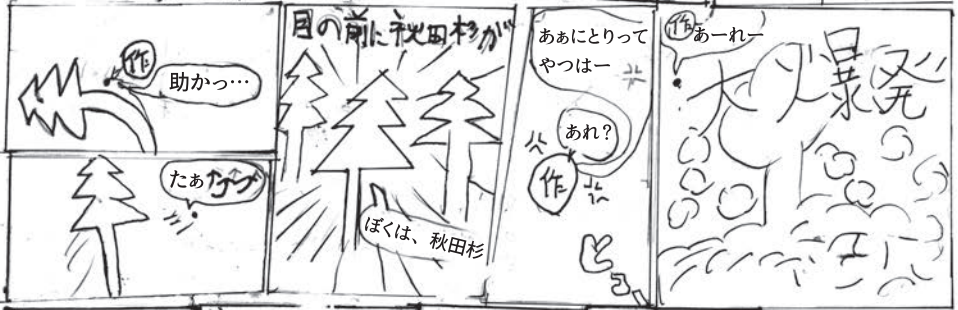 作
助かっ…
たぁ
目の前に秋田杉が
ぼくは、秋田杉
あぁにとりって
やつはー
あれ？
作
作
あーれー
大爆発